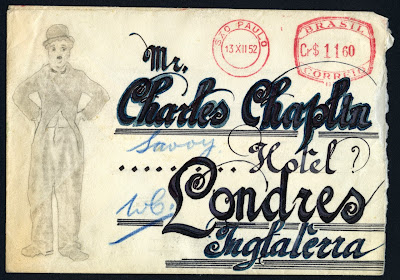 SÃO PAULO
13 XII 52
BRASIL
Cr$ 1160
CORREIO
Mr.
Charles Chaplin
Savoy.
......... Hotel ?
W.C.
Londres
Inglaterra